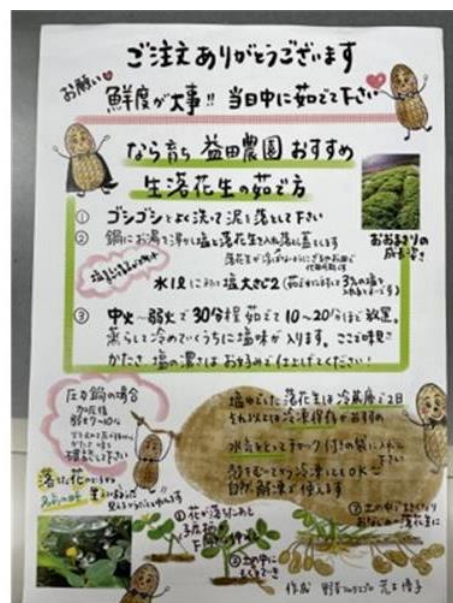 ご注文ありがとうございます
お願い
鮮度が大事!! 当日中に茹でて下さい
なら育ち 益田農園 おすすめ
生落花生の茹で方
① ゴシゴシとよく洗って泥を落として下さい
② 鍋にお湯を沸かし塩と落花生を入れ落し蓋をします
水1Lにつき 塩大さじ2
おおまさりの
③ 中火〜弱火で30分程茹でて10〜20分ほど放置。
蒸らして冷めていくうちに塩味が入ります。ここで味見
かたさ 塩の濃さはお好みで仕上げてください!
圧力鍋の場合
加圧後
弱火7〜10分
確認して下さい
塩ゆでした落花生は冷蔵庫で2日
それ以上は冷凍保存がおすすめ
水気をとってチャック付きの袋に入れて
下さい
殻をむいてから冷凍してもOK
自然解凍で使えます
① 花が落ちたあと
子房柄が
下に伸び
② 土の中に
もぐって
③ 土の中で
落花生に
作成 野菜ソムリエプロ